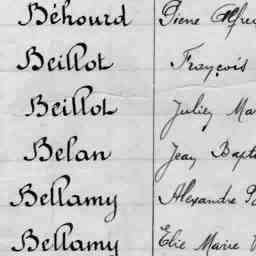 Béhourd Pierre Alfred
Beillot François
Beillot Julien Ma
Belan Jean Bapt
Bellamy Alexandre
Bellamy Elie Marie